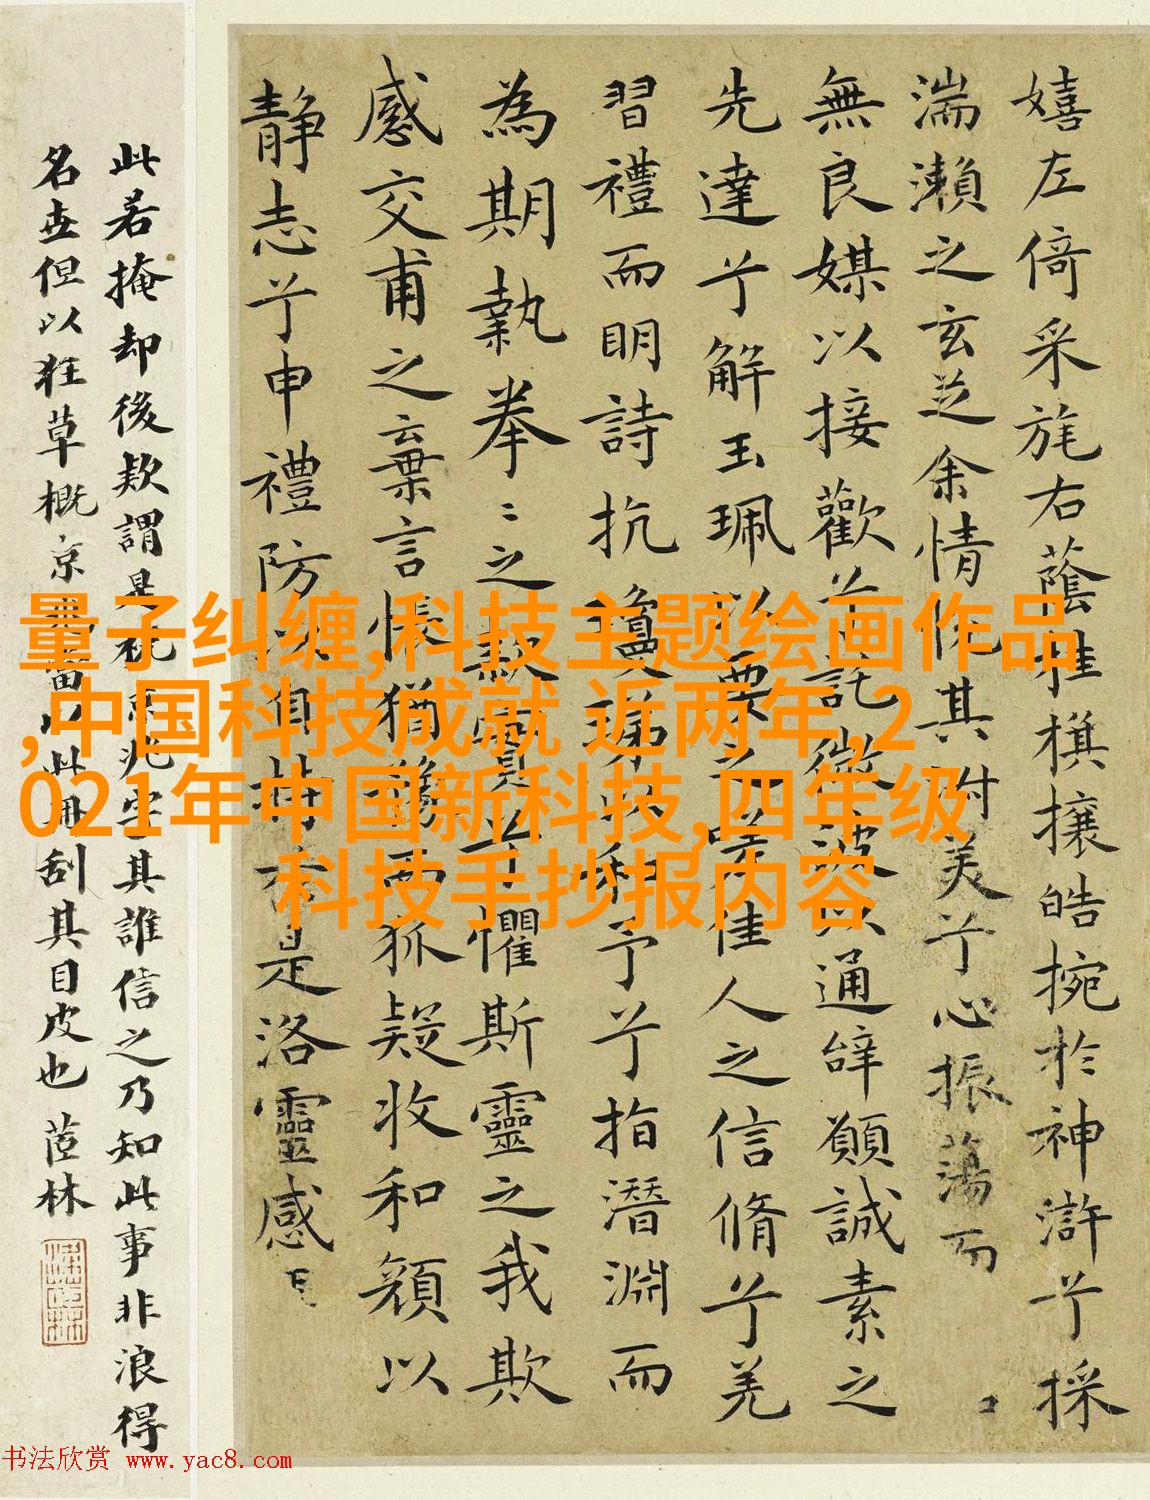 嬉左倚采旄右蔭桂旗攘皓捥於神滸兮採
湍瀨之玄芝余情悅其淑美兮心振蕩而
無良媒以接歡兮託微波以通辭願誠素之
先達兮解玉珮以要之嗟佳人之信脩兮羌
習禮而明詩抗瓊珶以和予兮指潛淵而
為期執拳〻之款實兮懼斯靈之我欺
感交甫之棄言悵猶豫而狐疑收和顏以
靜志兮申禮防以自持於是洛靈感
此若掩却後款謂是祝京兆字其誰信之乃知此事非浪得
名世但以狂草概京兆當以此冊刮其目皮也 茝林
量子纠缠,科技主题绘画作品
,中国科技成就 近两年,2
021年中国新科技,四年级
科技手抄报内容
书法欣赏 www.yac8.com